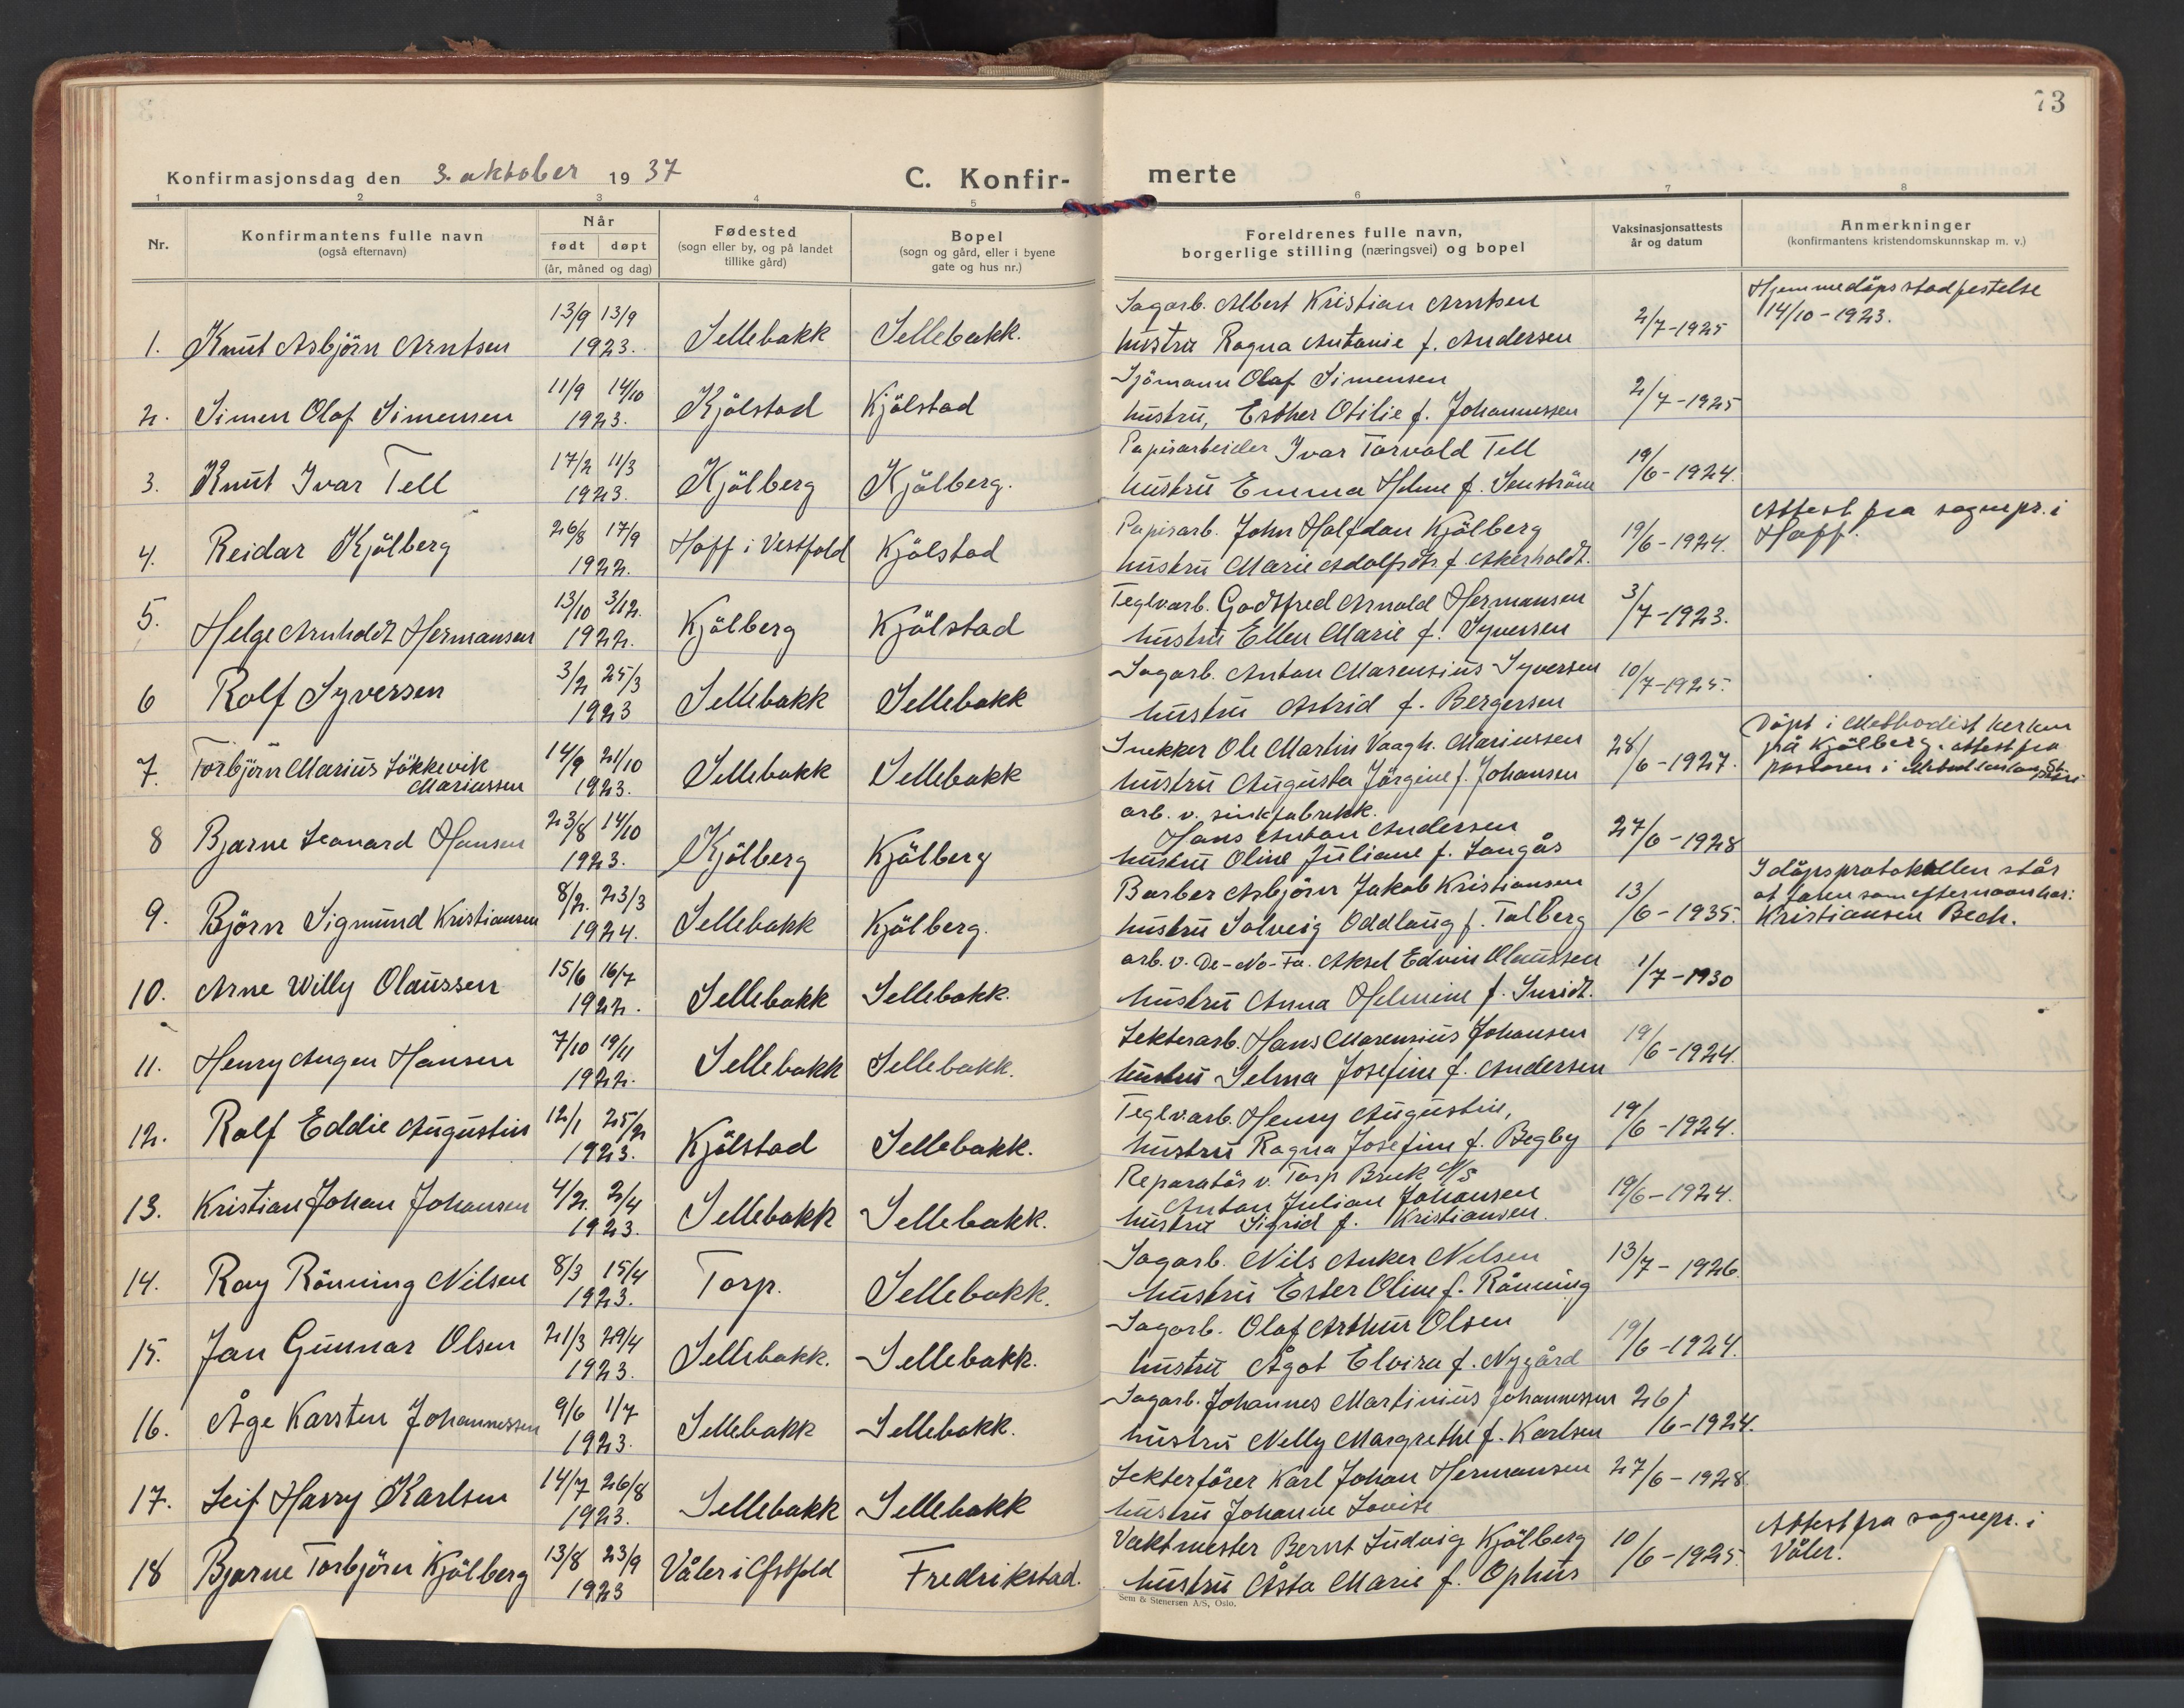 73
Konfirmasjonsdag den 3. oktober 1937
C. Konfir-
merte
1 2 3 4 5 6 7 8
Nr.
Konfirmantens fulle navn
(også efternavn)
Når
født døpt
(år, måned og dag)
Fødested
(sogn eller by, og på landet
tillike gård)
Bopel
(sogn og gård, eller i byene
gate og hus nr.)
Foreldrenes fulle navn,
borgerlige stilling (næringsvei) og bopel
Vaksinasjonsattests
år og datum
Anmerkninger
(konfirmantens kristendomskunnskap m. v.)
13/9 13/9 Sagarb. Albert Kristian Arntsen Hjemmedåps stadfestelse
1. Knut Asbjörn Arntsen 1923. Sellebakk Sellebakk. hustru Ragna Antonie f. Andersen 2/7-1925 14/10-1923.
11/9 14/10 Sjömann Olaf Simensen
2. Simen Olaf Simensen 1923. Kjölstad Kjölstad hustru, Esther Otilie f. Johannessen 2/7-1925
17/2 11/3 Papirarbeider Ivar Torvald Tell
3. Knut Ivar Tell 1923. Kjölberg Kjölberg. hustru Emma Helene f. Senström 19/6-1924.
26/8 17/9 Papirarb. John Halfdan Kjölberg Attest fra sognepr. i
4. Reidar Kjölberg 1922. Hoff i Vestfold Kjölstad hustru Marie Adolfsdtr. f. Akerholdt. 19/6-1924. Hoff.
13/10 3/12. Teglvarb. Godtfred Arnold Hermansen
5. Helge Arnholdt Hermansen 1922. Kjölberg Kjölstad hustru Ellen Marie f. Syversen 3/7-1923.
3/2 25/3 Sagarb. Anton Marensius Syversen
6 Rolf Syversen 1923 Sellebakk Sellebakk hustru Astrid f. Bergersen 10/7-1925.
14/9 21/10 Snekker Ole Martin Vaagh. Mariussen Döpt i Methodist kerken
7. Torbjörn Marius Lökkevik Mariussen 1923. Sellebakk Sellebakk hustru Augusta Jörgine f. Johansen 28/6-1927. på Kjölberg. Attest fra
pastoren i
23/8 14/10 arb. v. sinkfabrikk.
Hans Anton Andersen
8 Bjarne Leonard Hansen 1923. Kjölberg Kjölberg hustru Oline Juliane f. Langås 27/6-1928
8/2. 23/3 Barber Asbjörn Jakob Kristiansen I dåpsprotokollen står
at faren som efternavn har:
9. Björn Sigmund Kristiansen 1924. Sellebakk Kjölberg. hustru Solveig Oddlaug f. Talberg 13/6-1935. Kristiansen Bech.
15/6 16/7 arb. v. De-No-Fa. Aksel Edvin Olaussen
10. Arne Willy Olaussen 1922. Sellebakk Sellebakk. hustru Anna Helmine f. 1/7-1930
7/10 19/11 Lekterarb. Hans Marensius Johansen
11. Henry Augen Hansen 1922. Sellebakk Sellebakk. hustru Selma Josefine f. Andersen 19/6-1924.
12/1 25/2 Teglvarb. Henry Augustin,
12. Rolf Eddie Augustin 1923. Kjölstad Sellebakk. hustru Ragna Josefine f. Begby 19/6-1924.
4/2. 2/4 Reparatör v. Torp Bruk A/S
Anton Julian Johansen
13. Kristian Johan Johansen 1923. Sellebakk Sellebakk. hustru Sigrid f. Kristiansen. 19/6-1924.
8/3 15/4 Sagarb. Nils Anker Nilsen
14. Roy Rönning Nilsen 1923. Torp. Sellebakk. hustru Ester Oline f. Rönning 13/7-1926
21/3 29/4 Sagarb. Olaf Arthur Olsen
15. Jan Gunnar Olsen 1923. Sellebakk. Sellebakk. hustru Ågot Elvira f. Nygård 19/6-1924.
9/6 1/7 Sagarb. Johannes Martinius Johannessen
16. Åge Karsten Johannessen 1923. Sellebakk Sellebakk. hustru Nelly Margrethe f. Karlsen 26/6-1924.
14/7 26/8 Lekterförer Karl Johan Hermansen
17. Leif Harry Karlsen 1923. Sellebakk Sellebakk hustru Johanne Lovise 27/6-1928
13/8 23/9 Vaktmester Bernt Ludvig Kjölberg Attest fra sognepr. i
18 Bjarne Torbjörn Kjölberg 1923 Våler i Østfold Fredrikstad. hustru Åsta Marie f. Ophus 10/6-1925. Våler.
Sem & Stenersen A/S, Oslo.